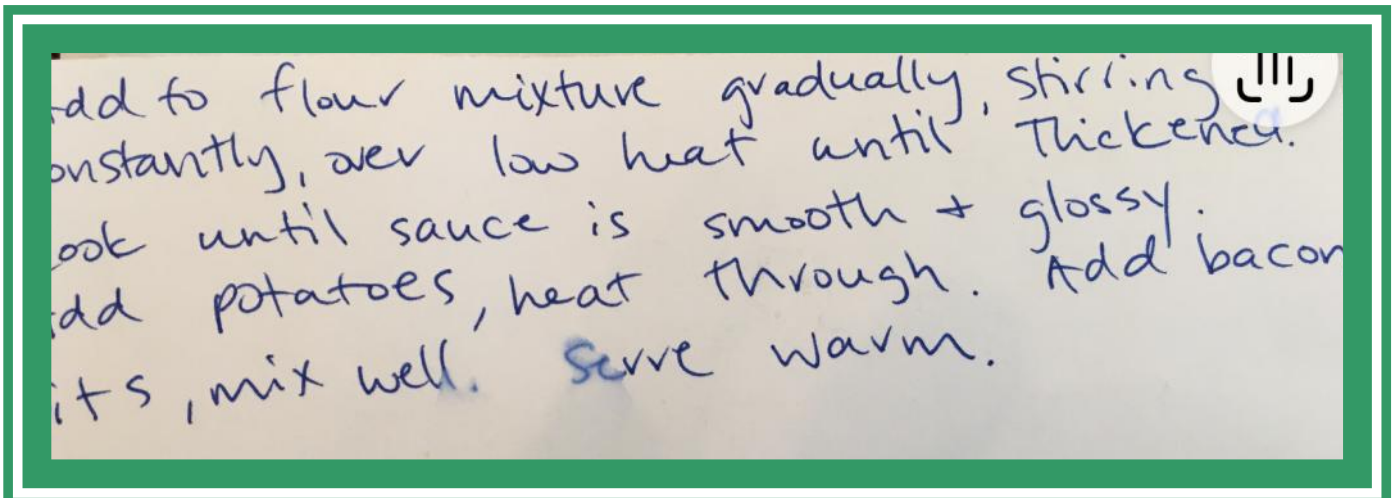 Add to flour mixture gradually, stirring
constantly, over low heat until thickened.
Cook until sauce is smooth + glossy.
Add potatoes, heat through. Add bacon
bits, mix well. Serve warm.